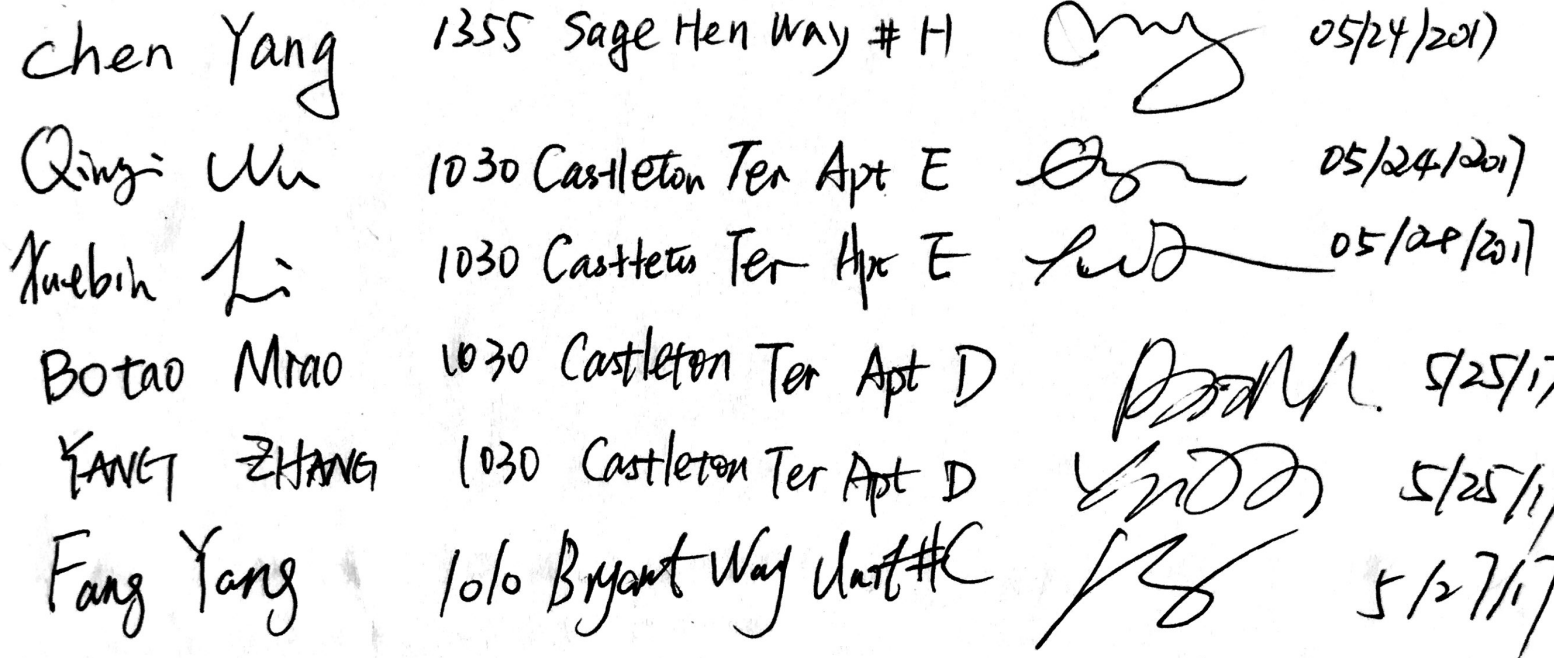 Chen Yang 1355 Sage Hen Way # H 05/24/2017
Qingi Wu 1030 Castleton Ter Apt E 05/24/2017
Xuebin Li 1030 Castleton Ter Apt E 05/24/2017
Botao Miao 1030 Castleton Ter Apt D 5/25/17
YANG ZHANG 1030 Castleton Ter Apt D 5/25/17
Fang Yang 1010 Bryant Way Unit #C 5/27/17